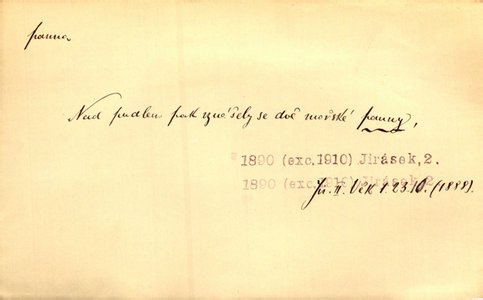 panna
Nad pudlem pak vznášely se dvě mořské panny,
1890 (exc.1910) Jirásek, 2.
1890 (exc.1910) Jirásek, 2.
Jir. II. Věk 1. 23. 10. (1888).